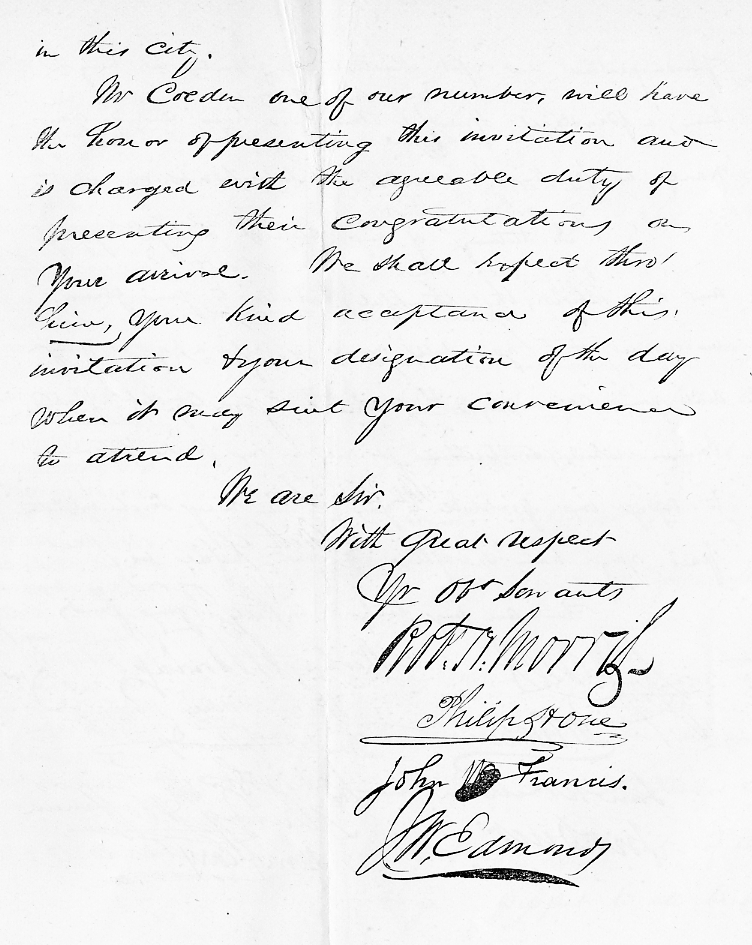 in this city.
Mr Colden one of our number, will have
the honor of presenting this invitation and
is charged with the agreeable duty of
presenting their congratulations on
Your arrival. We shall expect thro'
him, your kind acceptance of this
invitation & your designation of the day
when it may suit Your convenience
to attend.
We are Sir.
With great respect
Yr Obt Servants
Robt. H. Morris
Philip Hone
John W Francis.
J W. Edmonds